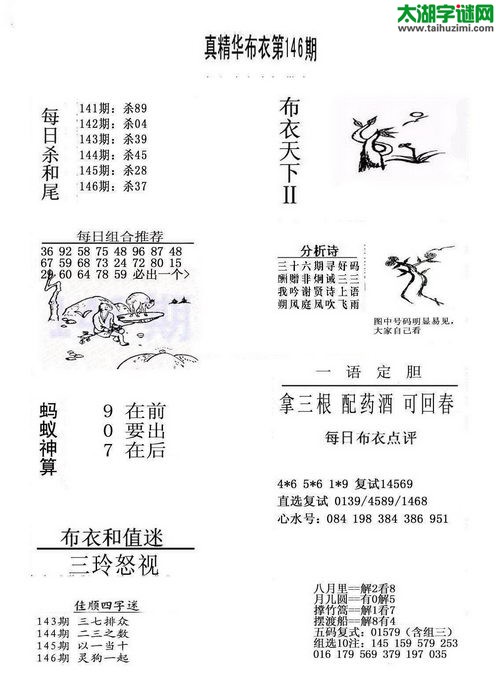 太湖字谜网
www.taihuzimi.com
真精华布衣第146期
每日杀和尾
141期：杀89
142期：杀04
143期：杀39
144期：杀45
145期：杀28
146期：杀37
布衣天下II
每日组合推荐
36 92 58 75 48 96 87 48
67 59 68 73 24 72 80 15
29 60 64 78 59 必出一个>
分析诗
三十六期寻好码
酬赠非炯诫三三
我吟谢贤诗上语
朔风庭凤吹飞雨
图中号码明显易见,
大家自己看
一语定胆
拿三根 配药酒 可回春
每日布衣点评
蚂蚁神算
9 在前
0 要出
7 在后
4*6 5*6 1*9 复试14569
直选复试 0139/4589/1468
心水号: 084 198 384 386 951
布衣和值迷
三玲怒视
佳顺四字迷
143期 三七排众
144期 二三之数
145期 以一当十
146期 灵狗一起
八月里==解2看8
月儿圆==有0解5
撑竹篙==解1看7
摆渡船==解8有4
五码复式: 01579 (含组三)
组选10注: 145 159 579 253
016 179 569 379 197 035